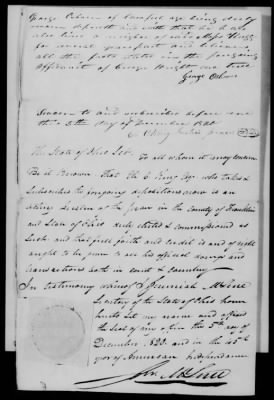 George Osborn of lawful age being duly
sworn deposeth and saith that he has
also been a neighbor of said Moses Wright
for several years past and believes
all the facts stated in the foregoing
affidavit of George Wright are true
George Osborn
Sworn to and subscribed before me
this 5th day of December 1820
The State of Ohio Sct.
To all whom it may concern
Be it Known, That the
subscribes the foregoing depositions now is an
acting Justice of the peace in the county of Franklin
and State of Ohio duly elected & commissioned as
Such and that full faith and credit is and of right
ought to be given to his official doings and
transactions both in court & Country
In testimony whereof I Jeremiah McLene
Secretary of the State of Ohio have
hereto Set my name and affixed
the Seal of my office the 5th day of
December, 1820 and in the 45th
year of American independence
Jer. McLene